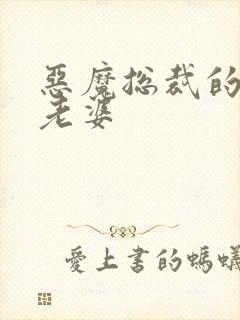 惡魔總裁的
老婆
愛上書的螞蟻